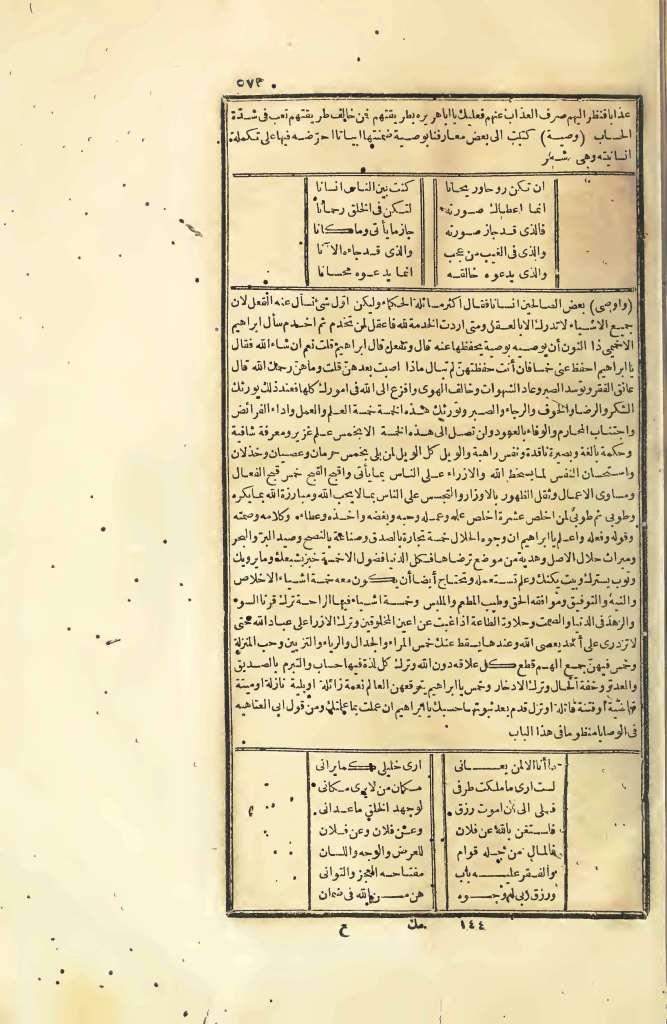 ٥٧٣
عذابا فنظر اليهم صرف العذاب عنهم فعليك يا أبا هريرة بطريقتهم فمن خالف طريقتهم تعب فى شدّة
الحساب (وصية) كتبت الى بعض معارفنا بوصية ضمنتها أبياتا أحرّضه فيها على تكملة
انسانيته وهى شعر
ان تكن روحا وريحانا كنت بين الناس انسانا
انما اعطاك صورته لتكن فى الخلق رحمانا
فالذى قد حاز صورته حاز ما يأتى وما كانا
والذى فى الغيب من عجب والذى قد جاءه الآنا
والذى يدعوه خالقه انما يدعوه محسانا
(وأوصى) بعض الصالحين انسانا فقال أكثر مسائلة الحكماء وليكن أوّل شئ تسأل عنه العقل لان
جميع الاشياء لا تدرك الا بالعقل ومتى أردت الخدمة لله فاعقل لمن تخدم ثم اخدم سأل ابراهيم
الاخميمى ذا النون أن يوصيه بوصية يحفظها عنه قال وتفعل قال ابراهيم قلت نعم ان شاء الله فقال
يا ابراهيم احفظ عنى خمسا فان أنت حفظتهنّ لم تبال ماذا أصبت بعدهنّ قلت وما هنّ رحمك الله قال
عانق الفقر وتوسد الصبر وعاد الشهوات وخالف الهوى وافزع الى الله فى أمورك كلها فعند ذلك يورثك
الشكر والرضا والخوف والرجاء والصبر وتورثك هذه الخمسة خمسة العلم والعمل وأداء الفرائض
واجتناب المحارم والوفاء بالعهود ولن تصل الى هذه الخمسة الا بخمس علم غزير ومعرفة شافية
وحكمة بالغة وبصيرة ناقدة ونفس راهبة والويل كل الويل لمن بلى بخمس حرمان وعصيان وخذلان
واستحسان النفس لما يسخط الله والازراء على الناس بما يأتى وأقبح القبح خمس قبح الفعال
ومساوى الاعمال وثقل الظهور بالاوزار والتجسس على الناس بما لا يحب الله ومبارزة الله بما يكره
وطوبى ثم طوبى لمن أخلص عشرة أخلص علمه وعمله وحبه وبغضه وأخذه وعطاءه وكلامه وصمته
وقوله وفعله واعلم يا ابراهيم ان وجوه الحلال خمسة تجارة بالصدق وصناعة بالنصح وصيد البرّ والبحر
وميراث حلال الاصل وهدية من موضع ترضاها فكل الدنيا فضول الا خمسة خبز يشبعك وماء يرويك
وثوب يسترك وبيت يكنك وعلم تستعمله وتحتاج أيضا أن يكون معه خمسة أشياء الاخلاص
والنية والتوفيق وموافقة الحق وطيب المطعم والملبس وخمسة أشياء فيها الراحة ترك قرناء السوء
والزهد فى الدنيا والصمت وحلاوة الطاعة اذا غبت عن أعين المخلوقين وترك الازراء على عباد الله حتى
لا تزدرى على أحد يعصى الله وعندها يسقط عنك خمس المراء والجدال والرياء والتزين وحب المنزلة
وخمس فيهنّ جمع الهم قطع كل علاقة دون الله وترك كل لذة فيها حساب والتبرم بالصديق
والعدوّ وخفة الحال وترك الادخار وخمس يا ابراهيم يتوقعهن العالم نعمة زائلة أو بلية نازلة أو ميتة
قاضية أو فتنة قاتلة أو تزل قدم بعد ثبوتها حسبك يا ابراهيم ان عملت بما علمتك ومن قول أبى العتاهية
فى الوصايا منظوما فى هذا الباب
أنا الا لمن يعانى أرى خليلى كما يرانى
لست أرى ما ملكت طرفى مكان من لا يرى مكانى
فلى الى أن أموت رزق لو جهد الخلق ما عدانى
فاستغن بالله عن فلان وعن فلان وعن فلان
فالمال من حله قوام للعرض والوجه واللسان
والفقر عليه باب مفتاحه العجز والتوانى
ورزق ربى له وجوه هن من الله فى ضمان
١٤٤ مك ح